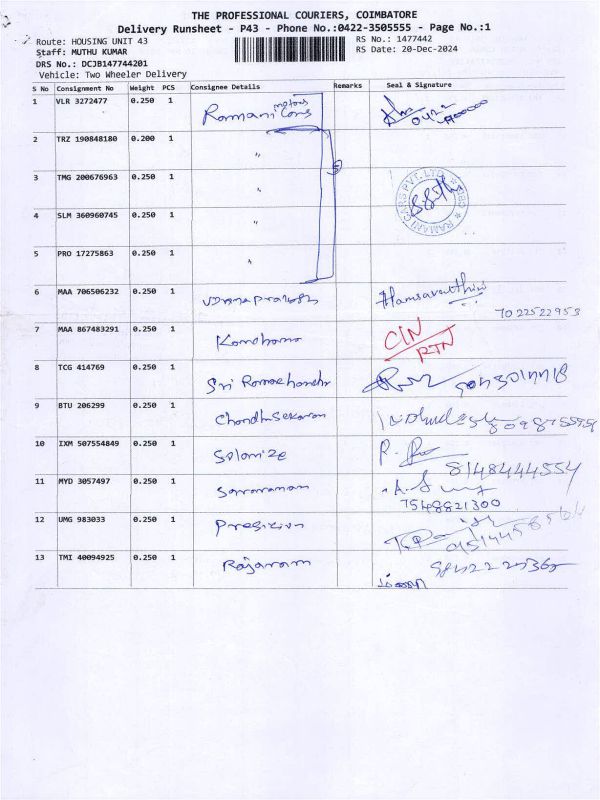 THE PROFESSIONAL COURIERS, COIMBATORE
Delivery Runsheet - P43 - Phone No.:0422-3505555 - Page No.:1
Route: HOUSING UNIT 43
RS No.: 1477442
Staff: MUTHU KUMAR
RS Date: 20-Dec-2024
DRS No.: DCJB147744201
Vehicle: Two Wheeler Delivery
S No Consignment No Weight PCS Consignee Details Remarks Seal & Signature
1 VLR 3272477 0.250 1 Ramani motors Cars
2 TRZ 190848180 0.200 1 "
3 TMG 200676963 0.250 1 "
RAMANI CARS PVT. LTD.
4 SLM 360960745 0.250 1 "
5 PRO 17275863 0.250 1 "
6 MAA 706506232 0.250 1 Hamsavarthini
7022522953
7 MAA 867483291 0.250 1 CIN
RTN
8 TCG 414769 0.250 1 Sri Ramachandr
9 BTU 206299 0.250 1 Chandhsekaran
10 IXM 507554849 0.250 1 Solonize
8148444554
11 MYD 3057497 0.250 1 Saravanam
7548821300
12 UMG 983033 0.250 1
13 TMI 40094925 0.250 1 Rajaram